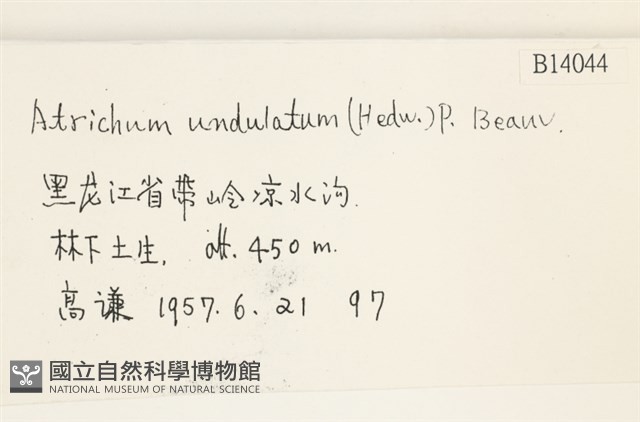 B14044
Atrichum undulatum (Hedw.) P. Beauv.
黑龙江省带岭凉水沟.
林下土生, alt. 450 m.
高谦 1957. 6. 21 97
國立自然科學博物館
NATIONAL MUSEUM OF NATURAL SCIENCE